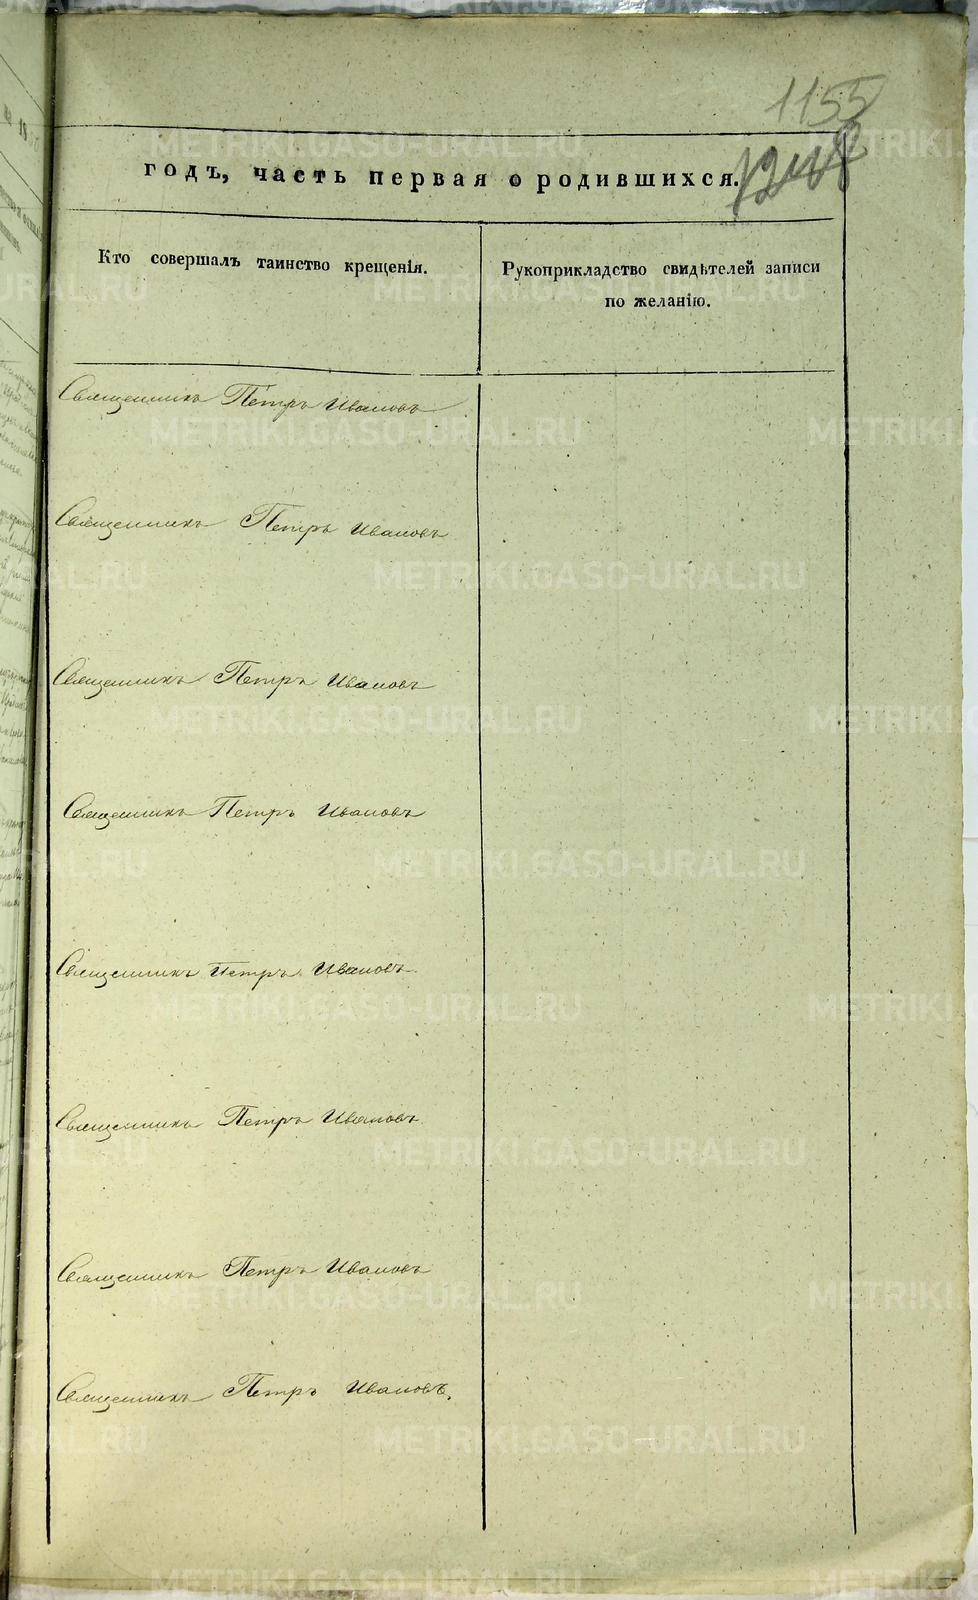 1155
1248
годъ, часть первая о родившихся.
Кто совершалъ таинство крещенія.
Рукоприкладство свидѣтелей записи
по желанію.
Священникъ Петръ Ивановъ
Священникъ Петръ Ивановъ
Священникъ Петръ Ивановъ
Священникъ Петръ Ивановъ
Священникъ Петръ Ивановъ.
Священникъ Петръ Ивановъ.
Священникъ Петръ Ивановъ
Священникъ Петръ Ивановъ.
METRIKI.GASO-URAL.RU